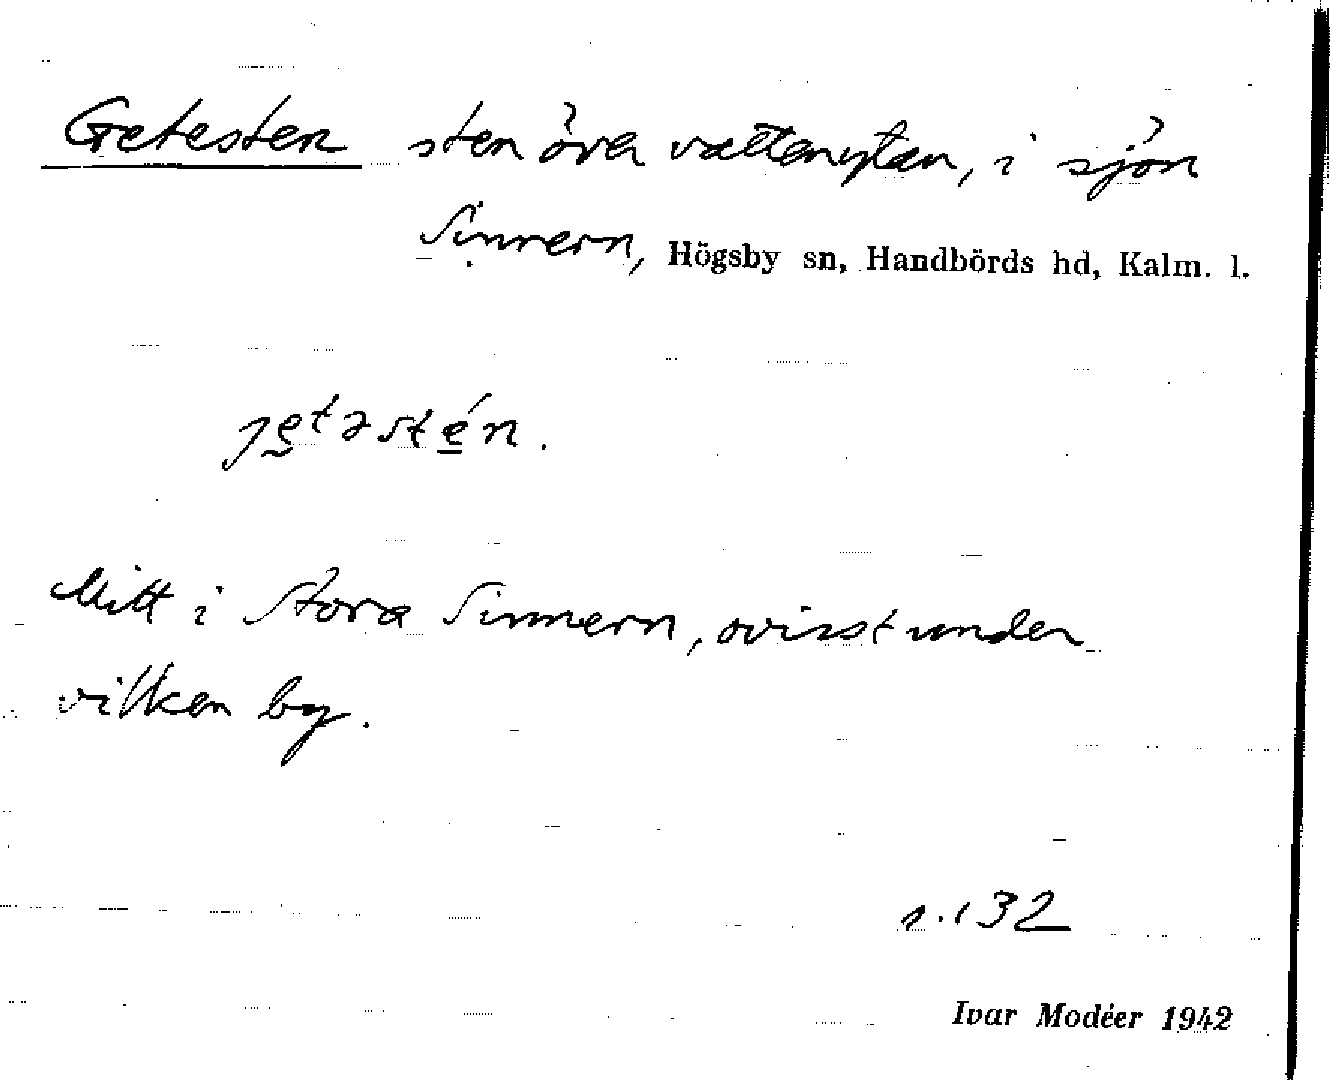 Getesten sten över vattenytan, i sjön
Sinnern, Högsby sn, Handbörds hd, Kalm. l.
jetəstén.
Mitt i Stora Sinnern, ovisst under
vilken by.
s. 132
Ivar Modéer 1942